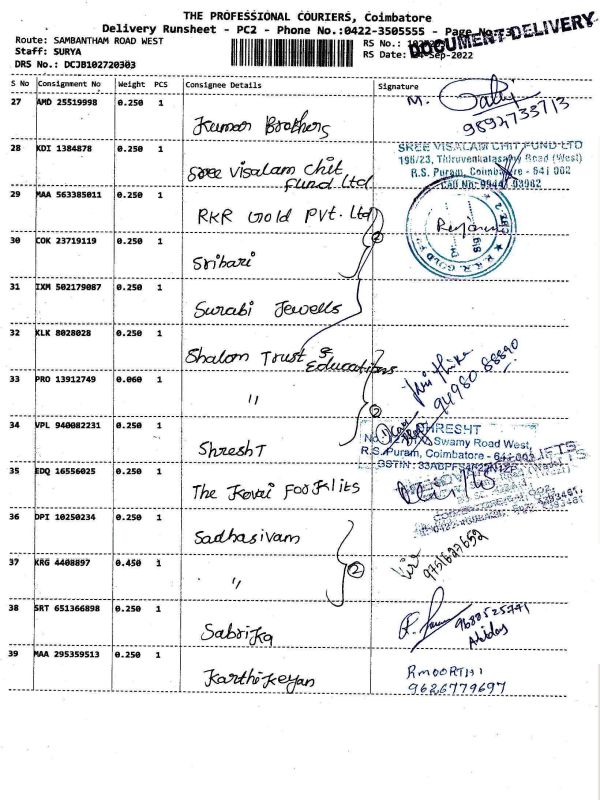 THE PROFESSIONAL COURIERS, Coimbatore
Delivery Runsheet - PC2 - Phone No.:0422-3505555 - Page No.:3
DOCUMENT DELIVERY
Route: SAMBANTHAM ROAD WEST
Staff: SURYA
DRS No.: DCJB102720303
RS No.:
RS Date: Sep-2022
S No Consignment No Weight PCS Consignee Details Signature
27 AMD 25519998 0.250 1
Kumar Brothers
M.
9894733713
28 KDI 1384878 0.250 1
Sree Visalam Chit
Fund Ltd
SREE VISALAM CHIT FUND LTD
196/23, Thiruvenkatasamy Road (West)
R.S. Puram, Coimbatore - 641 002
29 MAA 563385011 0.250 1
RKR Gold Pvt. Ltd
30 COK 23719119 0.250 1
Srihari
2
31 IXM 502179087 0.250 1
Surabi Jewells
32 KLK 8028028 0.250 1
Shalom Trust & Educations
94980.88890
33 PRO 13912749 0.060 1
"
2
34 VPL 940082231 0.250 1
Shresht
SHRESHT
Swamy Road West,
R.S. Puram, Coimbatore - 641 002
35 EDQ 16556025 0.250 1
The Kovai For Klits
36 DPI 10250234 0.250 1
Sadhasivam
37 KRG 4408897 0.450 1
"
2
9751627652
38 SRT 651366898 0.250 1
Sabrika
9688525741
39 MAA 295359513 0.250 1
Karthikeyan
RMOORTHI
9626779697